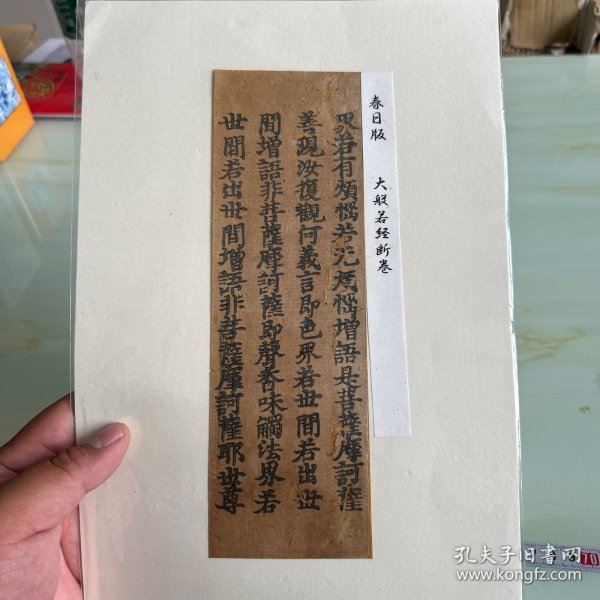 春日版 大般若经断卷
界若有煩惱若无煩惱增語是菩薩摩訶薩
善現汝復觀何義言即色界若世間若出世
間增語非菩薩摩訶薩即聲香味觸法界若
世間若出世間增語非菩薩摩訶薩耶世尊
孔夫子旧书网
www.kongfz.com
70